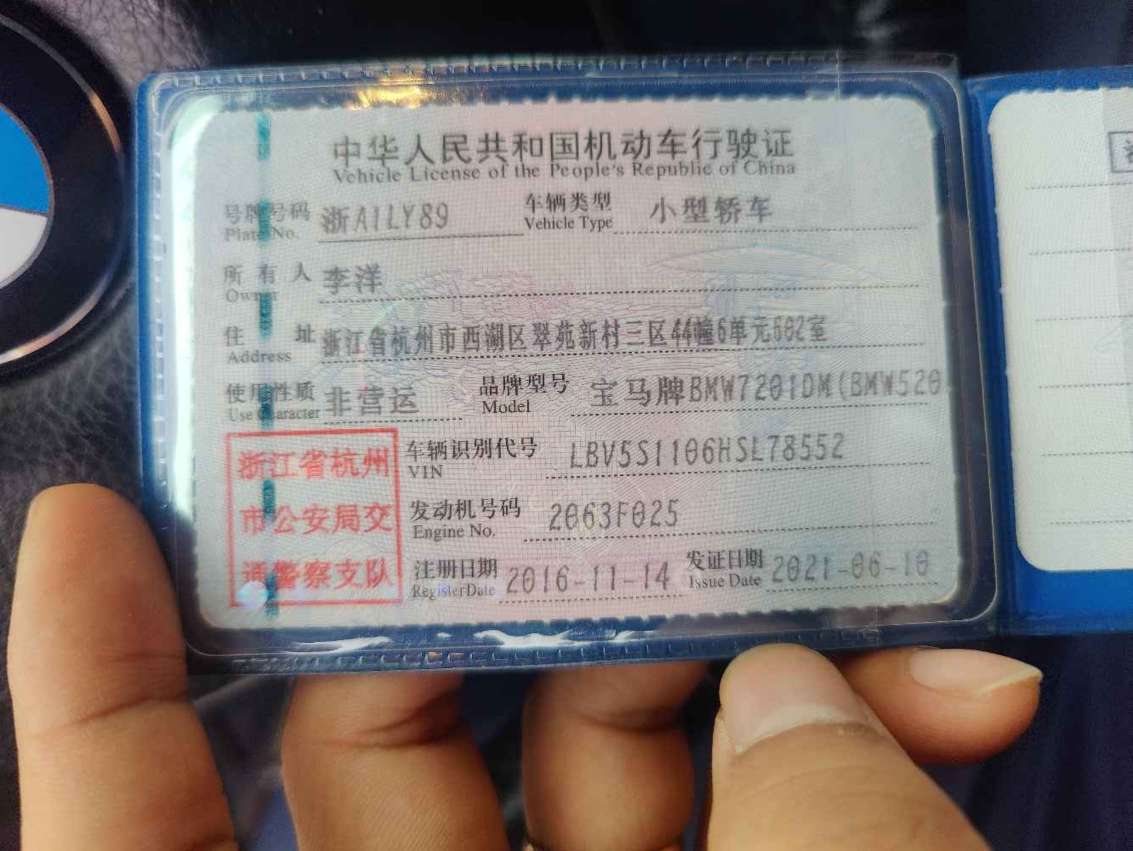 中华人民共和国机动车行驶证
Vehicle License of the People's Republic of China
号牌号码 浙A1LY89 车辆类型 小型轿车
Plate No. Vehicle Type
所有人 李洋
Owner
住址 浙江省杭州市西湖区翠苑新村三区44幢6单元602室
Address
使用性质 非营运 品牌型号 宝马牌BMW7201DM(BMW520
Use Character Model
浙江省杭州 车辆识别代号 LBV5S1106HSL78552
VIN
市公安局交 发动机号码 2063F025
Engine No.
通警察支队 注册日期 2016-11-14 发证日期 2021-06-10
Register Date Issue Date